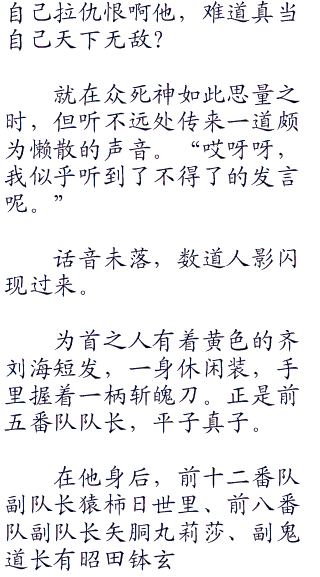 自己拉仇恨啊他，难道真当
自己天下无敌？
就在众死神如此思量之
时，但听不远处传来一道颇
为懒散的声音。“哎呀呀，
我似乎听到了不得了的发言
呢。”
话音未落，数道人影闪
现过来。
为首之人有着黄色的齐
刘海短发，一身休闲装，手
里握着一柄斩魄刀。正是前
五番队队长，平子真子。
在他身后，前十二番队
副队长猿柿日世里、前八番
队副队长矢胴丸莉莎、副鬼
道长有昭田钵玄